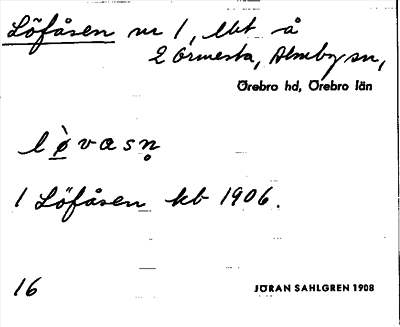 Löfåsen nr 1, lbt å
2 Ormesta, Almby sn,
Örebro hd, Örebro län
lø̀vasn̥
1 Löfåsen kb 1906.
16
JÖRAN SAHLGREN 1908